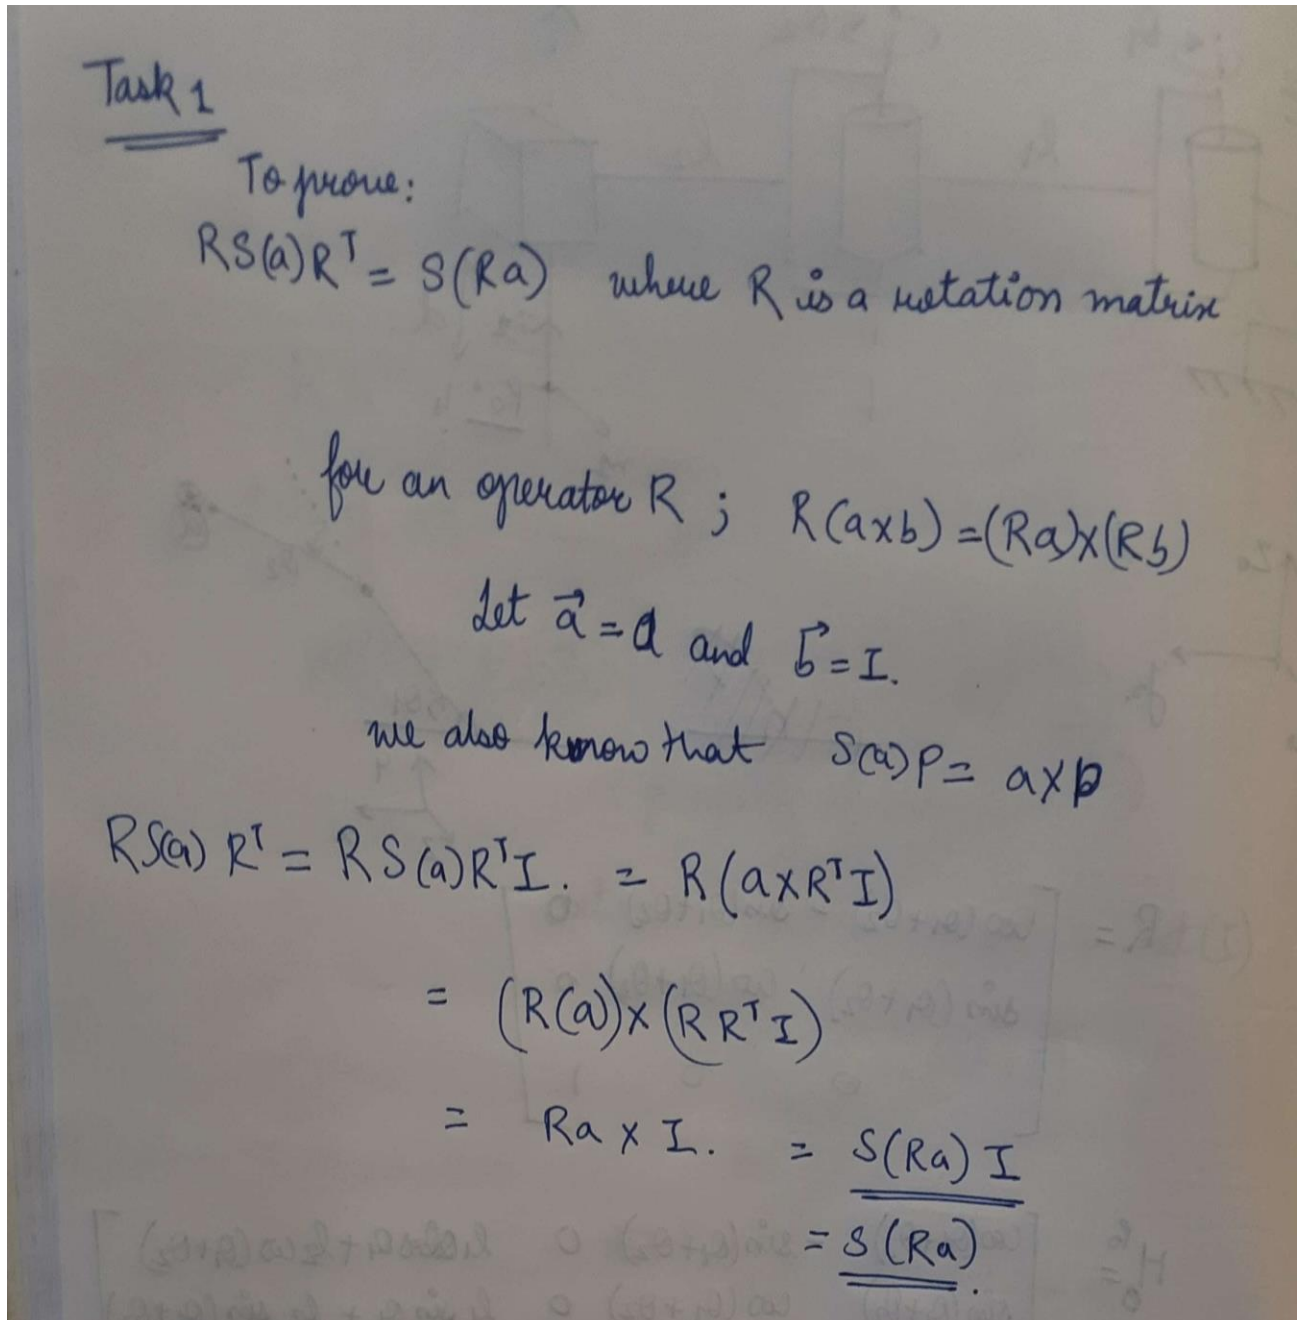 Task 1
To prove:
RS(a)R^T = S(Ra) where R is a rotation matrix
for an operator R ; R(axb) =(Ra)x(Rb)
Let a⃗ = a and b⃗ = I.
we also know that S(a)p = axp
RS(a) R^T = RS(a)R^T I. = R(axR^T I)
= (R(a))x(RR^T I)
= Ra x I. = S(Ra) I
= S(Ra).